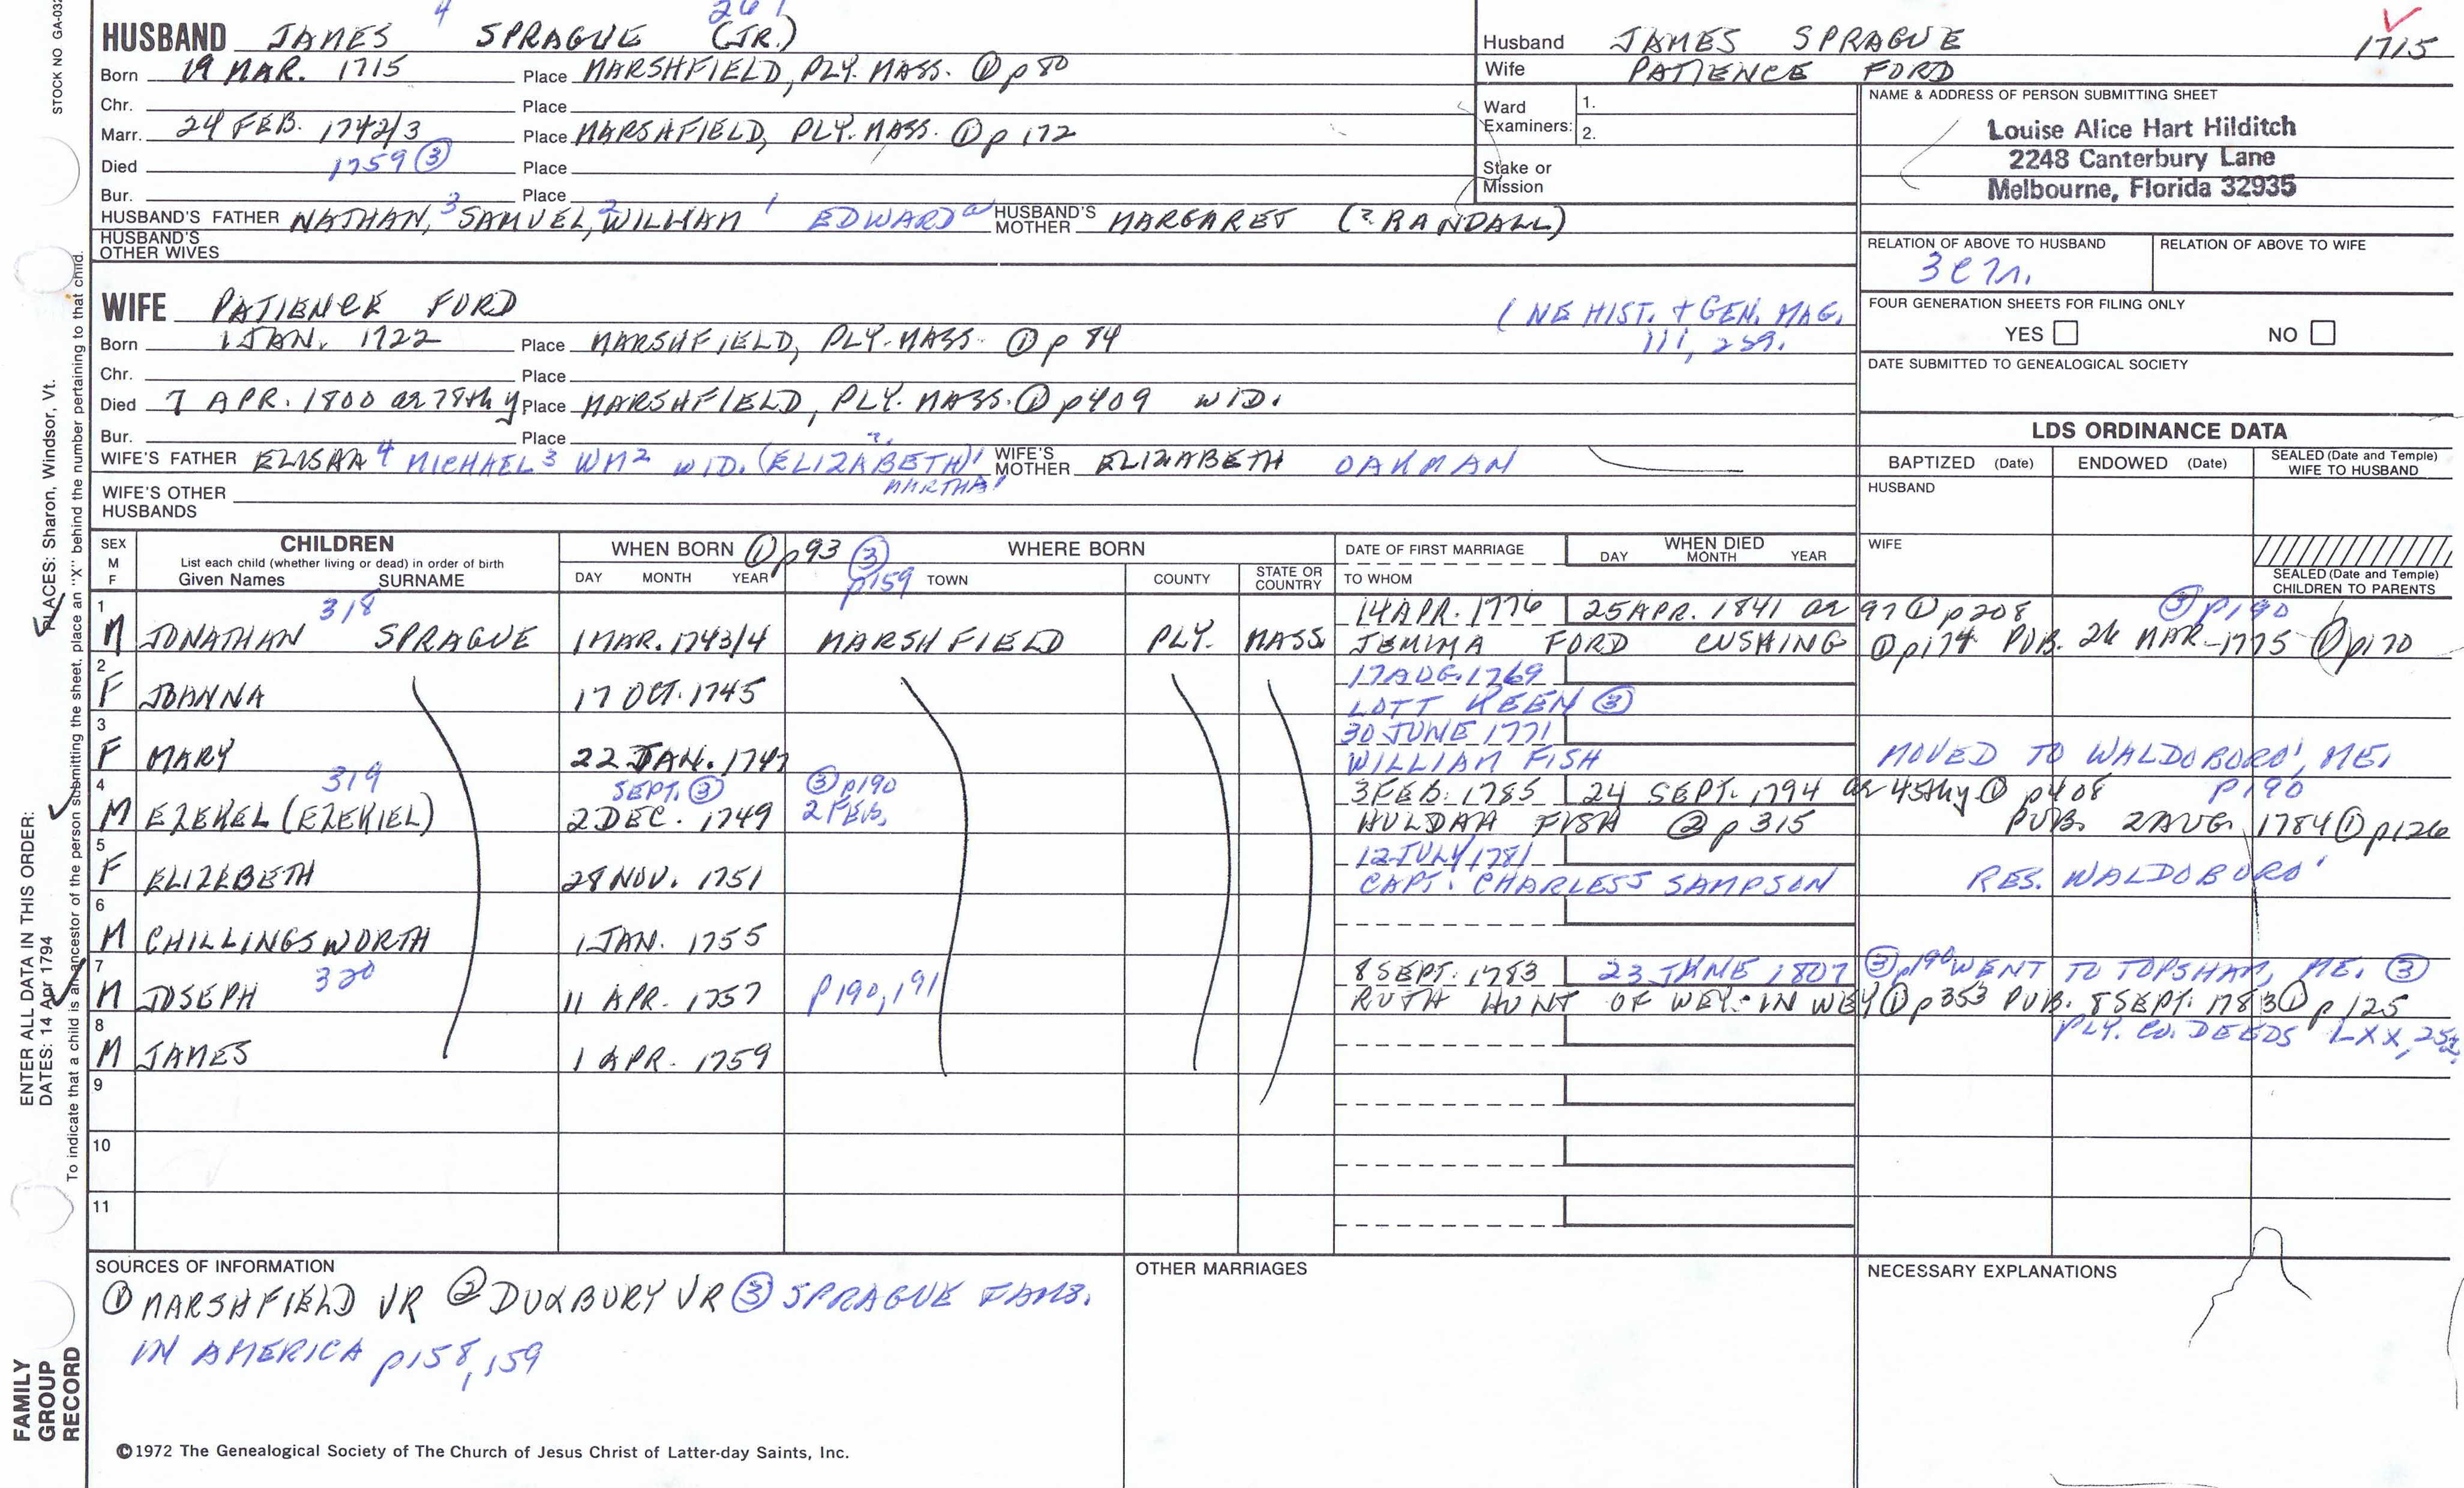 STOCK NO GA-032
4 261
HUSBAND JAMES SPRAGUE (JR.)
Born 19 MAR. 1715 Place MARSHFIELD, PLY. MASS. ① p 80
Chr. Place
Marr. 24 FEB. 1742/3 Place MARSHFIELD, PLY. MASS. ① p 172
Died 1759 ③ Place
Bur. Place
HUSBAND'S FATHER NATHAN,3 SAMUEL,2 WILLIAM 1 EDWARD a HUSBAND'S MOTHER MARGARET (? RANDALL)
HUSBAND'S OTHER WIVES
WIFE PATIENCE FORD
(NE HIST. + GEN. MAG.
111, 259.
Born 1 JAN. 1722 Place MARSHFIELD, PLY. MASS. ① p 84
Chr. Place
Died 7 APR. 1800 ae 78th y Place MARSHFIELD, PLY. MASS. ① p409 WID.
Bur. Place
WIFE'S FATHER ELISHA 4 MICHAEL 3 WM 2 WID. (ELIZABETH) 1 ? WIFE'S MOTHER ELIZABETH OAKMAN
MARTHA 1
WIFE'S OTHER HUSBANDS
Husband JAMES SPRAGUE 1715
Wife PATIENCE FORD
Ward Examiners: 1.
2.
Stake or Mission
NAME & ADDRESS OF PERSON SUBMITTING SHEET
Louise Alice Hart Hilditch
2248 Canterbury Lane
Melbourne, Florida 32935
RELATION OF ABOVE TO HUSBAND RELATION OF ABOVE TO WIFE
FOUR GENERATION SHEETS FOR FILING ONLY
YES NO
DATE SUBMITTED TO GENEALOGICAL SOCIETY
LDS ORDINANCE DATA
BAPTIZED (Date) ENDOWED (Date) SEALED (Date and Temple) WIFE TO HUSBAND
HUSBAND
WIFE
SEALED (Date and Temple) CHILDREN TO PARENTS
SEX M F CHILDREN WHEN BORN ① p93 ③ p159 WHERE BORN DATE OF FIRST MARRIAGE WHEN DIED
List each child (whether living or dead) in order of birth
Given Names SURNAME DAY MONTH YEAR TOWN COUNTY STATE OR COUNTRY TO WHOM DAY MONTH YEAR
1 318 14 APR. 1776 25 APR. 1841 ae 97 ① p208 ③ p190
M JONATHAN SPRAGUE 1 MAR. 1743/4 MARSHFIELD PLY. MASS. JEMIMA FORD CUSHING ① p174 PUB. 26 MAR-1775 ① p170
2 17 AUG. 1769
F JOANNA 17 OCT. 1745 LOTT KEEN ③
3 30 JUNE 1771
F MARY 22 JAN. 1747 WILLIAM FISH MOVED TO WALDOBORO', ME.
4 319 SEPT. ③ ③ p190 3 FEB. 1785 24 SEPT. 1794 ae 45thy ① p408 p190
M EZEKEL (EZEKIEL) 2 DEC. 1749 2 FEB. HULDAH FISH ② p315 PUB. 2 AUG. 1784 ① p126
5 12 JULY 1781
F ELIZEBETH 28 NOV. 1751 CAPT. CHARLESS SAMPSON RES. WALDOBORO'
6
M CHILLINGSWORTH 1 JAN. 1755
7 320 8 SEPT. 1783 23 JUNE 1807 ③ p190 WENT TO TOPSHAM, ME. ③
M JOSEPH 11 APR. 1757 p190,191 RUTH HUNT OF WEY. IN WEY ① p353 PUB. 8 SEPT. 1783 ① p125
8 PLY. CO. DEEDS LXX, 252.
M JAMES 1 APR. 1759
9
10
11
SOURCES OF INFORMATION
① MARSHFIELD VR ② DUXBURY VR ③ SPRAGUE FAMS.
IN AMERICA p158,159
OTHER MARRIAGES
NECESSARY EXPLANATIONS
©1972 The Genealogical Society of The Church of Jesus Christ of Latter-day Saints, Inc.
FAMILY
GROUP
RECORD
ENTER ALL DATA IN THIS ORDER:
DATES: 14 Apr 1794
PLACES: Sharon, Windsor, Vt.
To indicate that a child is an ancestor of the person submitting the sheet, place an "X" behind the number pertaining to that child.